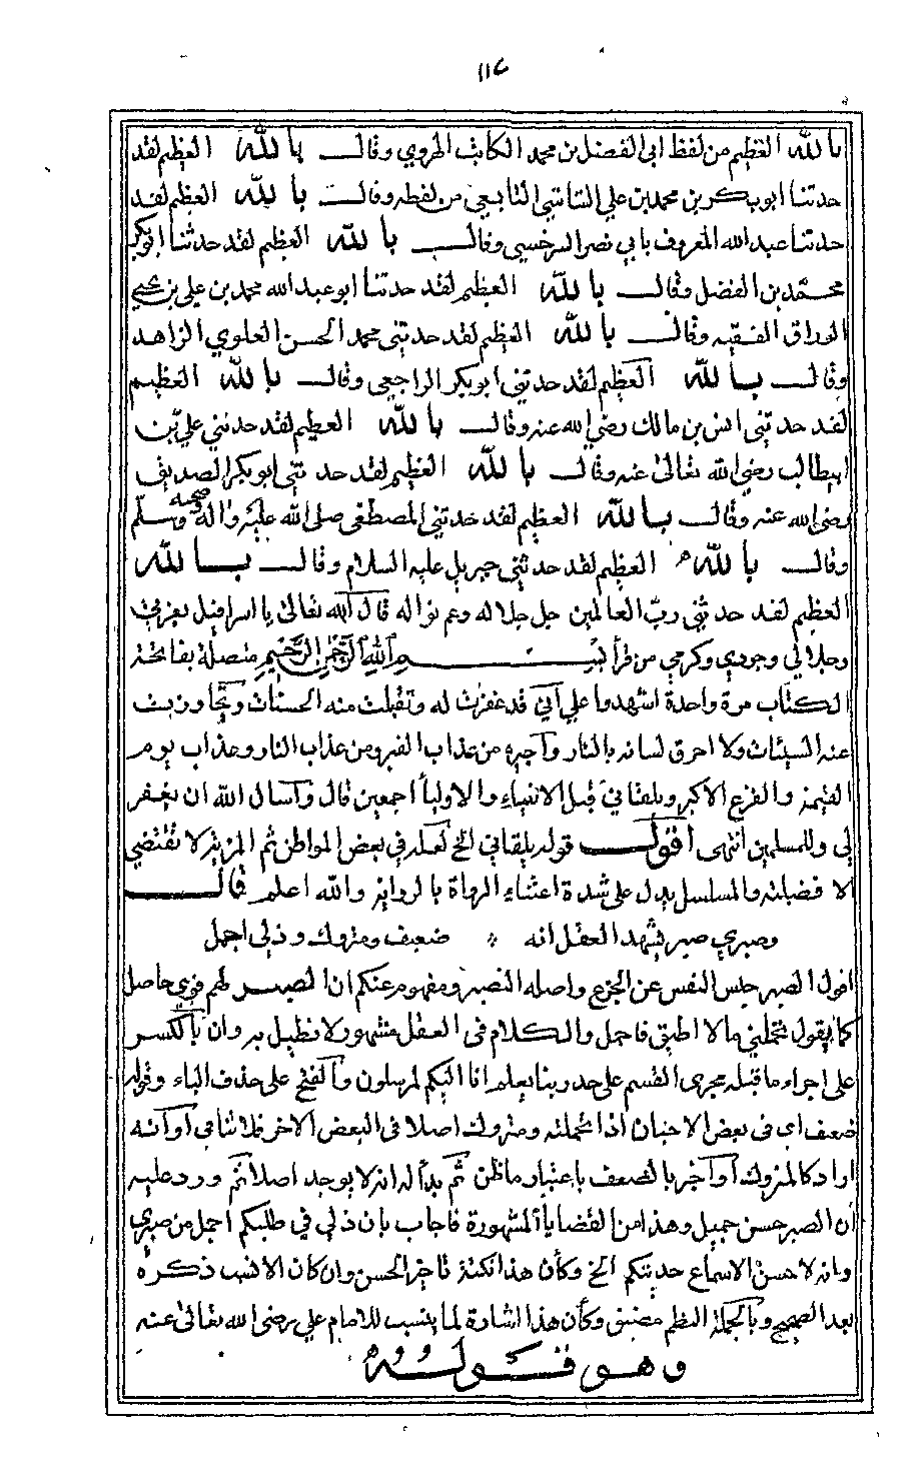 ١١٤
بالله العظيم من لفظ ابي الفضل بن محمد الكاتب الهروي وقال بالله العظيم لقد
حدثنا ابوبكر بن محمد بن علي الشاشي التابعي من لفظه وقال بالله العظيم لقد
حدثنا عبد الله المعروف بابي نصر السرخسي وقال بالله العظيم لقد حدثنا ابوبكر
محمد بن الفضل وقال بالله العظيم لقد حدثنا ابو عبد الله محمد بن علي بن يحيى
الوراق الفقيه وقال بالله العظيم لقد حدثني محمد الحسن العلوي الزاهد
وقال بالله العظيم لقد حدثني ابوبكر الراجعي وقال بالله العظيم
لقد حدثني انس بن مالك رضي الله عنه وقال بالله العظيم لقد حدثني علي بن
ابيطالب رضي الله تعالى عنه وقال بالله العظيم لقد حدثني ابوبكر الصديق
رضي الله عنه وقال بالله العظيم لقد حدثني المصطفى صلى الله عليه واله وصحبه وسلم
وقال بالله العظيم لقد حدثني جبريل عليه السلام وقال بالله
العظيم لقد حدثني رب العالمين جل جلاله وعم نواله قال الله تعالى يا اسرافيل بعزتي
وجلالي وجودي وكرمي من قرأ بسم الله الرحمن الرحيم متصلة بفاتحة
الكتاب مرة واحدة اشهدوا علي اني قد غفرت له وتقبلت منه الحسنات وتجاوزت
عنه السيئات ولا احرق لسانه بالنار وآجيره من عذاب القبر ومن عذاب النار وعذاب يوم
القيمة والفزع الاكبر ويلقاني قبل الانبياء والاوليآ اجمعين قال وآسال الله ان يغفر
لي وللمسلمين انتهى اقول قوله يلقاني الخ لعله في بعض المواطن ثم المزية لا تقتضي
الافضلية والمسلسل يدل على شدة اعتناء الرواة بالرواية والله اعلم قال
وصبري صبر يشهد العقل انه ضعيف ومتروك وذلي اجمل
اقول الصبر حبس النفس عن الجزع واصله الصبر ومفهوم عنكم ان الصبر لهم قوي حاصل
كما يقول تحملني ما لا اطيق فاحمل والكلام في العقل مشهور لا نطيل به وان بالكسر
على اجراء ما قبله مجرى القسم على حد ربنا يعلم انا اليكم لمرسلون وآلفتح على حذف الباء وقوله
ضعيف اي في بعض الاحيان اذا تحملته ومتروك اصلا في البعض الاخر فلا تنافي أوآنه
اراد كالمتروك أوآخبر بالضعف باعتبار ما ظن ثم بدأ له انه لا يوجد اصلا ثم ورد عليه
أن الصبر حسن جميل وهذا من القضايا المشهورة فاجاب بان ذلي في طلبكم اجمل من صبري
وانه لا حسن الاسماع حديثكم الخ وكأن هذا نكتة تاخير الحسن وان كان الانسب ذكره
بعد الصحيح وبالجملة النظم مضيق وكأن هذا اشارة لما ينسب للامام علي رضي الله تعالى عنه
وهو قوله